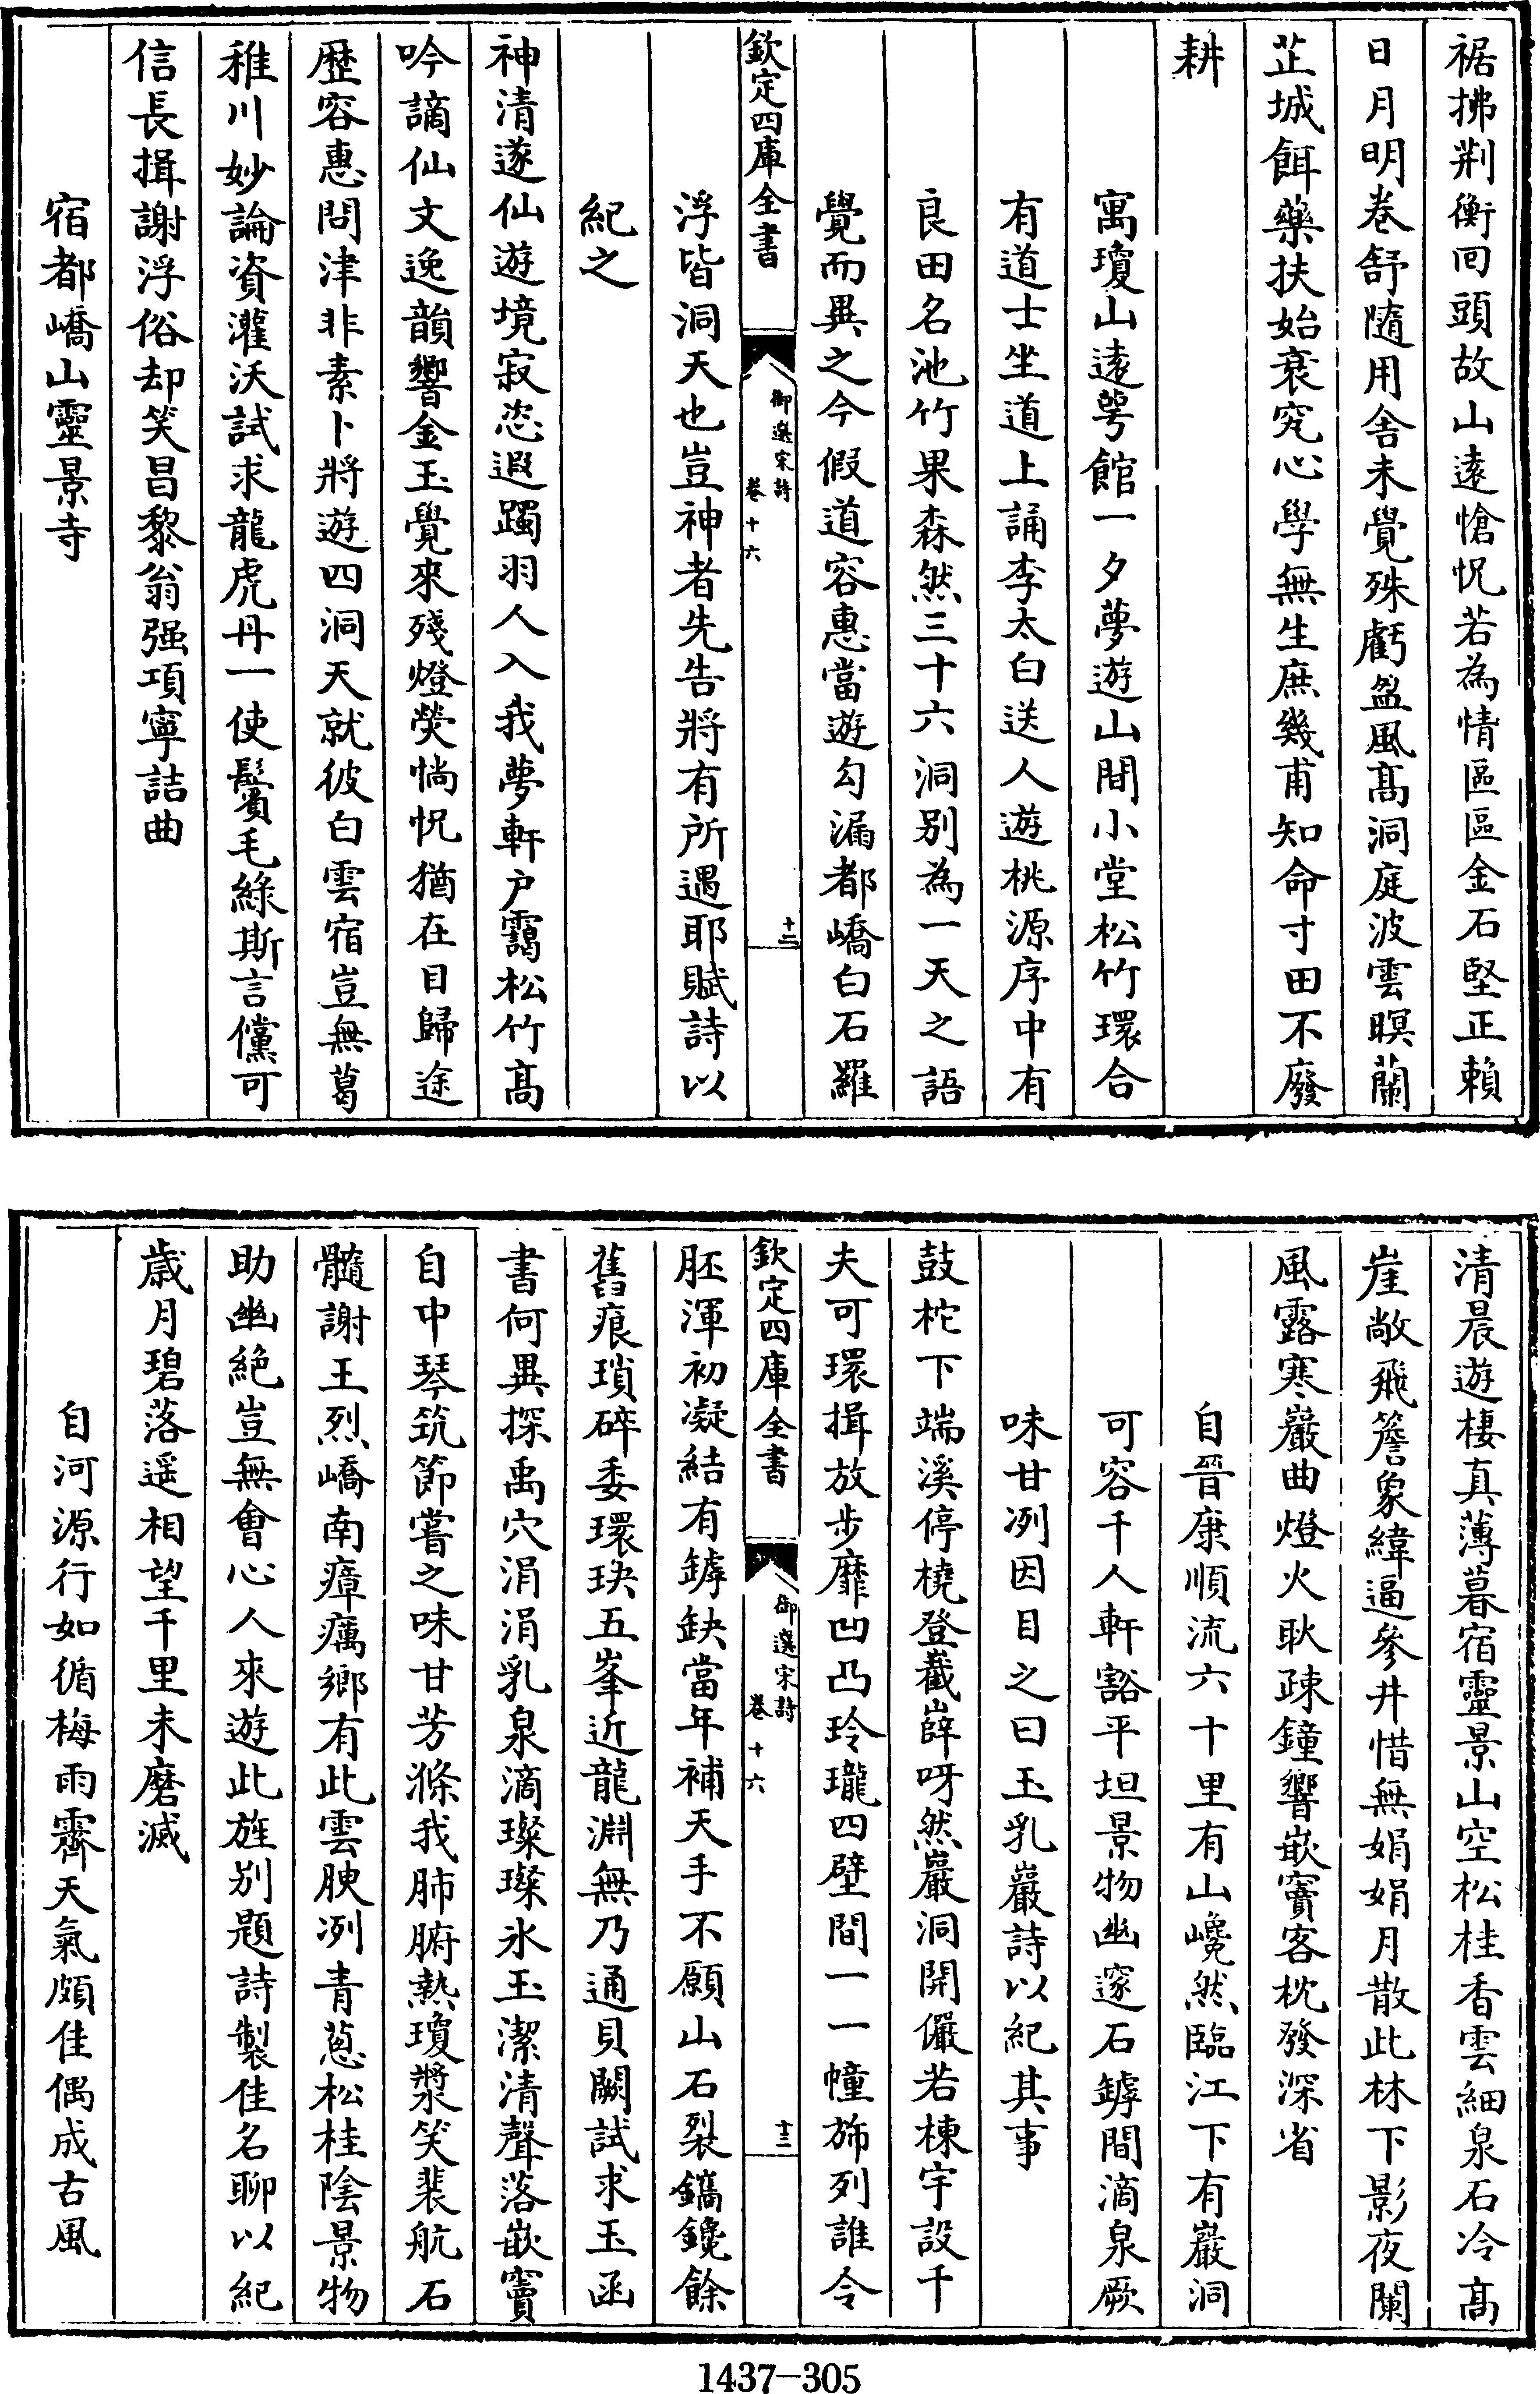 裾拂荆衡回頭故山遠愴怳若為情區區金石堅正賴
日月明卷舒隨用舍未覺殊虧盈風髙洞庭波雲暝蘭
芷城餌藥扶始衰究心學無生庶幾甫知命寸田不廢
耕
寓瓊山逺萼館一夕夢遊山間小堂松竹環合
有道士坐道上誦李太白送人遊桃源序中有
良田名池竹果森然三十六洞别為一天之語
覺而異之今假道容惠當遊勾漏都嶠白石羅
欽定四庫全書
御選宋詩
卷十六
十二
浮皆洞天也豈神者先告將有所遇耶賦詩以
紀之
神清遂仙遊境寂恣遐躅羽人入我夢軒户靄松竹髙
吟謫仙文逸韻響金玉覺來殘燈熒惝怳猶在目歸途
歴容惠問津非素卜將遊四洞天就彼白雲宿豈無葛
稚川妙論資灌沃試求龍虎丹一使鬢毛緑斯言儻可
信長揖謝浮俗却笑昌黎翁强項寧詰曲
宿都嶠山靈景寺
清晨遊棲真薄暮宿靈景山空松桂香雲細泉石冷髙
崖敞飛簷象緯逼參井惜無娟娟月散此林下影夜闌
風露寒巖曲燈火耿疎鐘響嵌竇客枕發深省
自晉康順流六十里有山巉然臨江下有巖洞
可容千人軒豁平坦景物幽邃石罅間滴泉厥
味甘冽因目之曰玉乳巖詩以紀其事
鼓柁下端溪停橈登巀嶭呀然巖洞開儼若棟宇設千
夫可環揖放步靡凹凸玲瓏四壁間一一幢斾列誰令
欽定四庫全書
御選宋詩
卷十六
十三
胚渾初凝結有罅缺當年補天手不願山石裂鐫鑱餘
舊痕瑣碎委環玦五峯近龍淵無乃通貝闕試求玉函
書何異探禹穴涓涓乳泉滴璨璨氷玉潔清聲落嵌竇
自中琴筑節嘗之味甘芳滌我肺腑熱瓊漿笑裴航石
髓謝王烈嶠南瘴癘鄉有此雲腴冽青葱松桂陰景物
助幽絶豈無會心人來遊此旌别題詩製佳名聊以紀
歳月碧落遥相望千里未磨滅
自河源行如循梅雨霽天氣頗佳偶成古風
1437-305